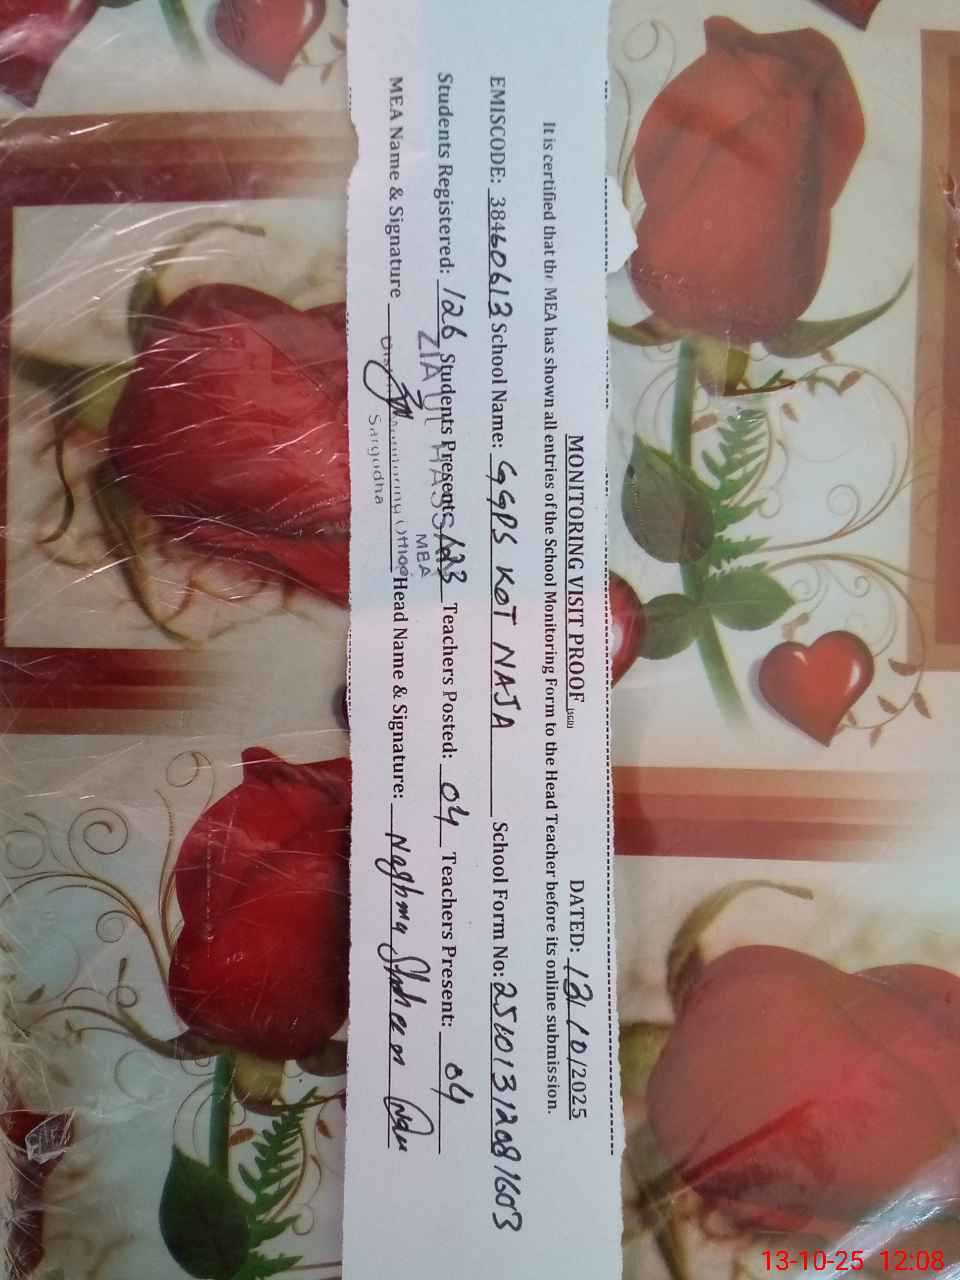 MONITORING VISIT PROOF (SGD) DATED: 13/10/2025
It is certified that the MEA has shown all entries of the School Monitoring Form to the Head Teacher before its online submission.
EMISCODE: 38460613 School Name: GGPS KOT NAJA School Form No: 25101312081603
Students Registered: 126 Students Present: 123 Teachers Posted: 04 Teachers Present: 04
ZIA UL HASSAN
MEA
MEA Name & Signature Head Name & Signature: Naghma Shaheen
Monitoring Office
Sargodha
13-10-25 12:08